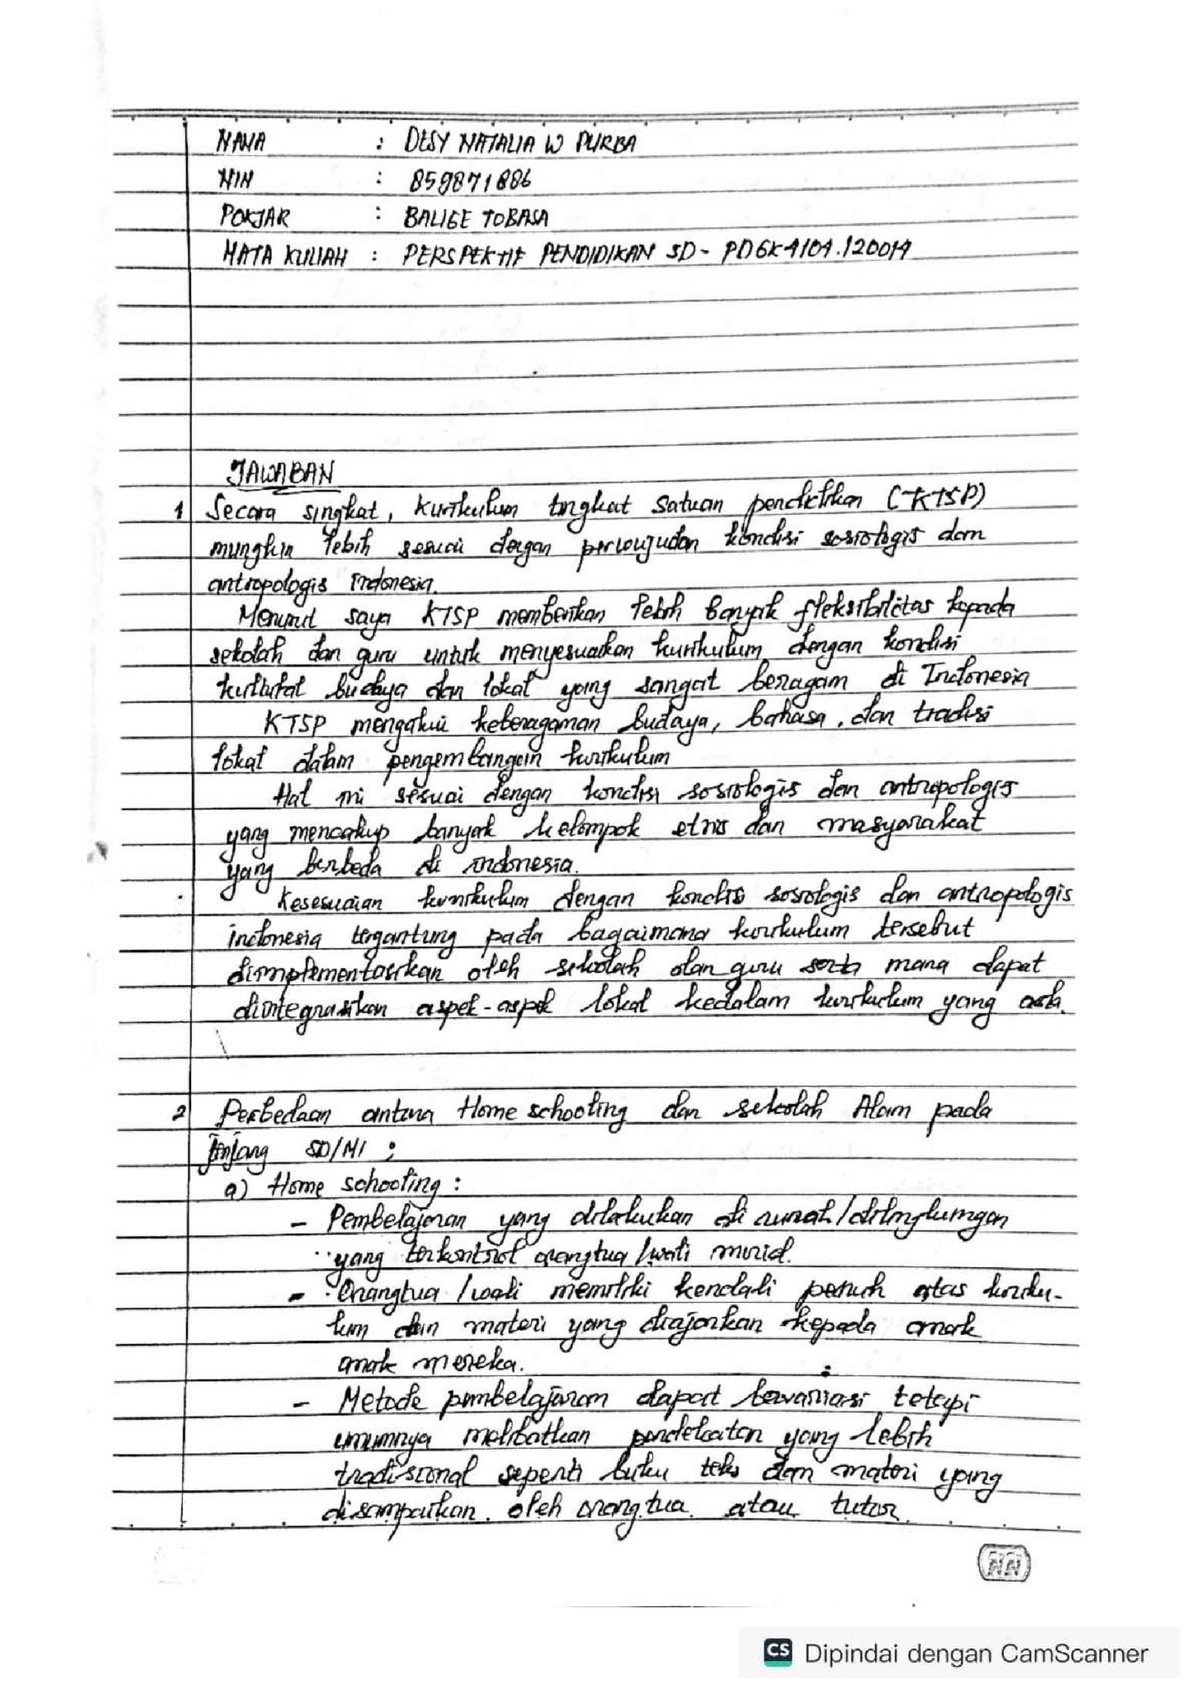 NAMA : DESY NATALIA W PURBA
NIM : 859871886
POKJAR : BALIGE TOBASA
MATA KULIAH : PERSPEKTIF PENDIDIKAN SD - PDGK4104.120014
JAWABAN
1 Secara singkat, kurikulum tingkat satuan pendidikan (KTSP)
mungkin lebih sesuai dengan perwujudan kondisi sosiologis dan
antropologis indonesia.
Menurut saya KTSP memberikan lebih banyak fleksibilitas kepada
sekolah dan guru untuk menyesuaikan kurikulum dengan kondisi
kultural budaya dan lokal yang sangat beragam di Indonesia
KTSP mengakui keberagaman budaya, bahasa, dan tradisi
lokal dalam pengembangan kurikulum
Hal ini sesuai dengan kondisi sosiologis dan antropologis
yang mencakup banyak kelompok etnis dan masyarakat
yang berbeda di indonesia.
Kesesuaian kurikulum dengan kondisi sosiologis dan antropologis
indonesia tergantung pada bagaimana kurikulum tersebut
diimplementasikan oleh sekolah dan guru serta mana dapat
diintegrasikan aspek-aspek lokal kedalam kurikulum yang ada.
2 Perbedaan antara Home schooling dan sekolah Alam pada
jenjang SD/MI ;
a) Home schooling :
- Pembelajaran yang dilakukan di rumah/dilingkungan
yang terkontrol orangtua/wali murid.
- Orangtua/wali memiliki kendali penuh atas kuriku-
lum dan materi yang diajarkan kepada anak
anak mereka.
- Metode pembelajaran dapat bervariasi tetapi
umumnya melibatkan pendekatan yang lebih
tradisional seperti buku teks dan materi yang
disampaikan oleh orangtua atau tutor
NN
CS Dipindai dengan CamScanner